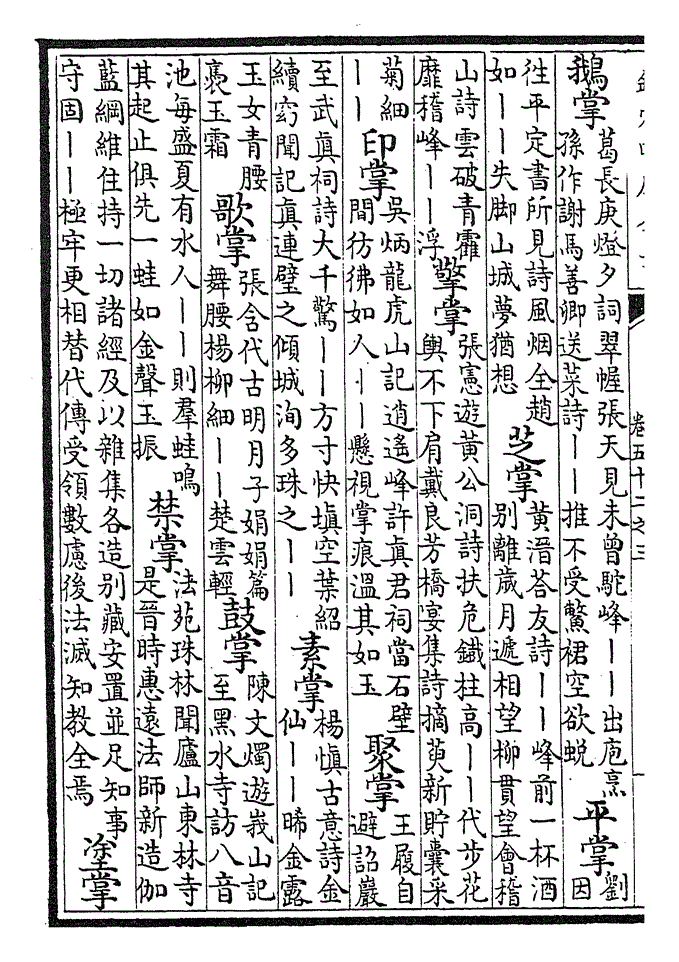 卷五十二之三
鵝掌
葛長庚燈夕詞翠幄張天見未曾駝峰丨丨出庖烹
孫作謝馮善卿送菜詩丨丨推不受鱉裙空欲蛻
平掌
劉
因
徃平定書所見詩風烟全趙
如丨丨失脚山城夢猶想
芝掌
黃溍荅友詩丨丨峰前一杯酒
別離歲月遞相望柳貫望會稽
山詩雲破青霍
靡稽峰丨丨浮
擎掌
張憲遊黃公洞詩扶危鐡柱高丨丨代步花
輿不下肩戴良芳橋宴集詩摘萸新貯囊采
菊細
丨丨
印掌
吳炳龍虎山記逍遙峰許眞君祠當石壁
間彷彿如人丨丨懸視掌痕溫其如玉
聚掌
王履自
避詔巖
至武眞祠詩大千驚丨丨方寸快塡空葉紹
續窈聞記眞連璧之傾城洵多珠之丨丨
素掌
楊愼古意詩金
仙丨丨晞金露
玉女青腰
裛玉霜
歌掌
張含代古明月子娟娟篇
舞腰楊柳細丨丨楚雲輕
鼓掌
陳文燭遊峩山記
至黑水寺訪八音
池每盛夏有水人丨丨則羣蛙鳴
其起止俱先一蛙如金聲玉振
禁掌
法苑珠林聞廬山東林寺
是晉時惠遠法師新造伽
藍綱維住持一切諸經及以雜集各造別藏安置並足知事
守固丨丨極牢更相替代傳受領數慮後法滅知教全焉
塗掌